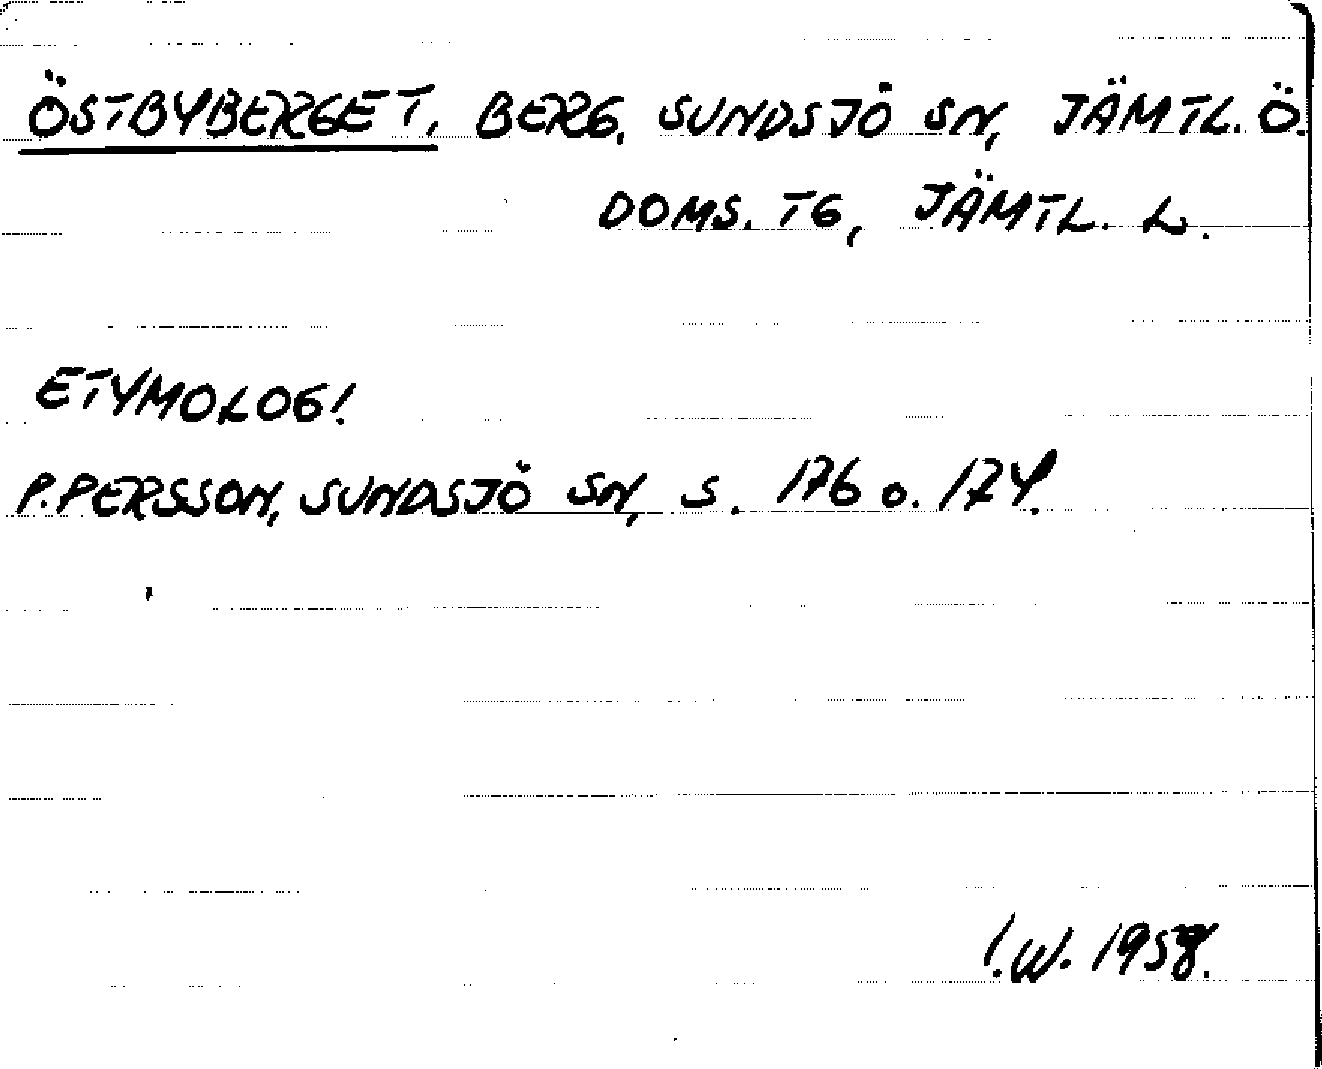 ÖSTBYBERGET, BERG, SUNDSJÖ SN, JÄMTL. Ö.
DOMS. TG, JÄMTL. L.
ETYMOLOG!
P. PERSSON, SUNDSJÖ SN, S. 176 o. 174.
I.W. 1958.